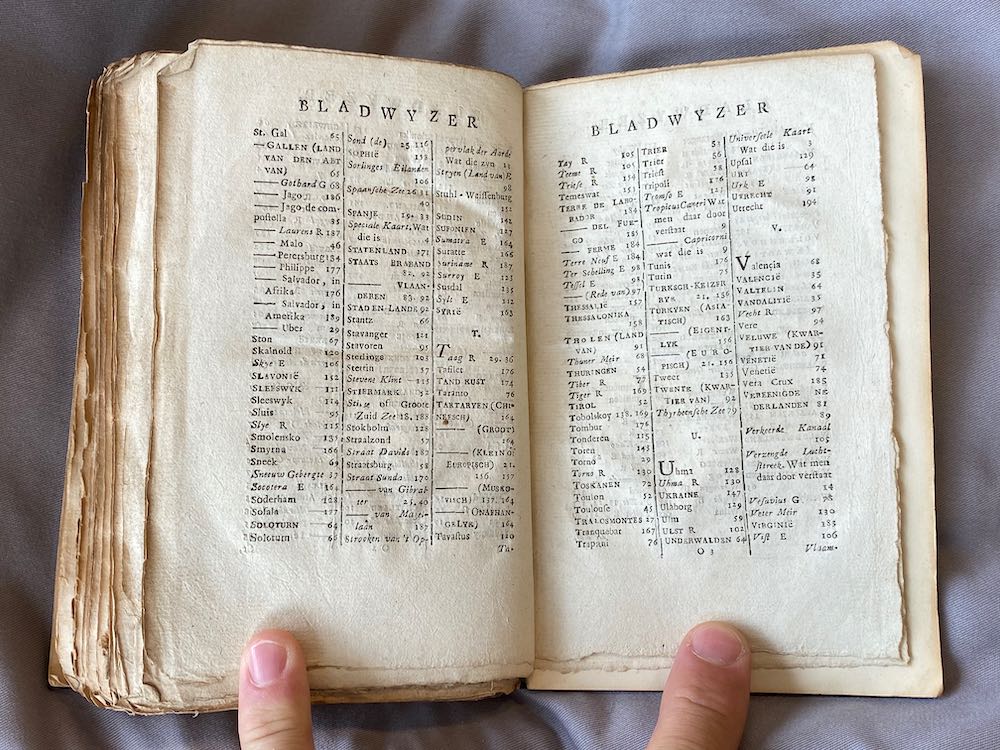 BLADWYZER
St. Gal 65
— GALLEN (LAND
VAN DEN ABT
VAN) 65
— Gothard G 68
— Jago 186
— Jago de com-
postella 35
— Laurens R 187
— Malo 46
— Petersburg 134
— Philippe 177
— Salvador, in
Afrika 176
— Salvador, in
Amerika 189
— Ubes 29
Ston 67
Skalnold 120
Skye E 106
SLAVONIË 152
SLEESWYK 121
Sleeswyk 114
Sluis 95
Slye R 115
Smolensko 135
Smyrna 166
Sneek 69
Sneeuw Gebergte 37
Socotera E 164
Söderham 128
Sofala 177
SOLOTURN 64
Soloturn 66
Sond (de) 25. 116
SOPHIË 153
Sorlinges Eilanden
106
Spaansche Zee 26. 31
40
SPANJE 19. 33
Speciale Kaart, Wat
die is 4
STATENLAND 171
STAATS BRABAND
82. 92
— VLAAN-
DEREN 83. 92
STAD EN-LANDE 92
Stantz 66
Stavanger 121
Stavoren 95
Sterlinge 103
Stettin 57
Stevens Klint 115
STIERMARK 52
Stille of Groote
Zuid Zee 18. 188
Stokholm 128
Straalzond 57
Straat Davids 187
Straatsburg 58
Straat Sunda 170
— van Gibral-
ter 25. 40
— van Magel-
laan 187
Strooken van 't Op-
pervlak der Aarde
Wat die zyn 12
Stryen (Land van) E
98
Stuhl-Weissenburg
152
SUDIN 142
SUFONIEN 127
Sumatra E 164
Suratte 166
Suriname R 187
Surrey E 123
Susdal 135
Sylt E 112
SYRIË 163
T.
Taag R 29. 36
Tafilet 176
TAND KUST 174
Taranto 76
TARTARYEN (CHI-
NEESCH) 164
— (GROOT)
164
— (KLEIN OF
EUROPISCH) 21.
156. 157
— (MUSKO-
VISCH) 137. 164
— ONAFHAN-
GELYK) 164
Tavastus 120
Ta-
BLADWYZER
Tay R 105
Teeme R 105
Triese R 154
Temeswar 153
TERRE DE LABO-
RADOR 184
— DEL FUE-
GO 185
— FERME 184
Terre Neuf E 184
Ter Schelling E 98
Tessel E 98
— (Rede van) 97
THESSALIË 157
THESSALONIKA
158
THOLEN (LAND
VAN) 91
Thuner Meir 68
THURINGEN 54
Tiber R 77
Tiger R 169
TIROL 52
Tobolskoy 138. 169
Tombut 176
Tonderen 115
Toren 145
Torno 29
Torno R 130
TOSKANEN 72
Toulon 52
Toulouse 45
TRALOSMONTES 27
Tranquebar 167
Trapani 76
TRIER 52
Trier 56
Triest 58
Tripoli 176
Tromso E 127
Tropicus Cancri Wat
men daar door
verstaat 9
— Capricorni
wat die is 9
Tunis 176
Turin 75
TURKSCH-KEIZER
RYK 21. 156
TURKYEN (ASIA-
TISCH) 163
— (EIGENT-
LYK 156
— (EURO-
PISCH) 21. 156
Tweet 135
TWENTE (KWAR-
TIER VAN) 92
Thyrheensche Zee 79
U.
Uhma 128
Uhma R 130
UKRAINE 147
Ulaborg 129
Ulm 59
ULST R 102
UNDERWALDEN 64
Universeele Kaart
Wat die is 3
Upsal 129
URT 64
Urk E 98
UTRECHT 91
Utrecht 194
V.
Valencia 68
VALENCIË 35
VALTELIN 64
VANDALITIË 35
Vecht R 97
Vere 94
VELUWE (KWAR-
TIER VAN DE) 91
VENETIË 71
Venetië 74
Vera Crux 185
VEREENIGDE NE-
DERLANDEN 81
89
Verkeerde Kanaal
105
Verzengde Lucht-
streek. Wat men
daar door verstaat
14
Vesuvius G 78
Veter Meir 130
VIRGINIË 185
Vist E 106
O 3
Vlaam-